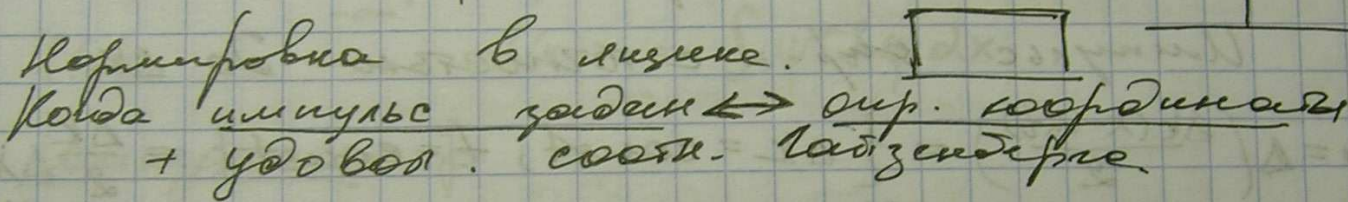 Нормировка в ящике.
Когда импульс задан <-> опр. координаты
+ удовол. соотн. Гайзенберга